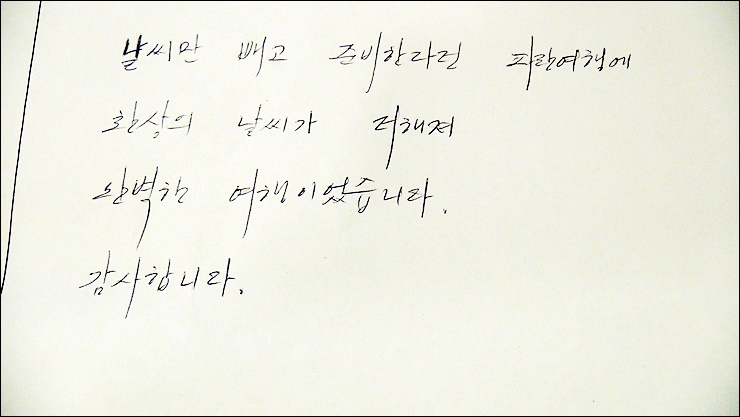 날씨만 빼고 준비한다던 파란여행에
환상의 날씨가 더해져
완벽한 여행이었습니다.
감사합니다.